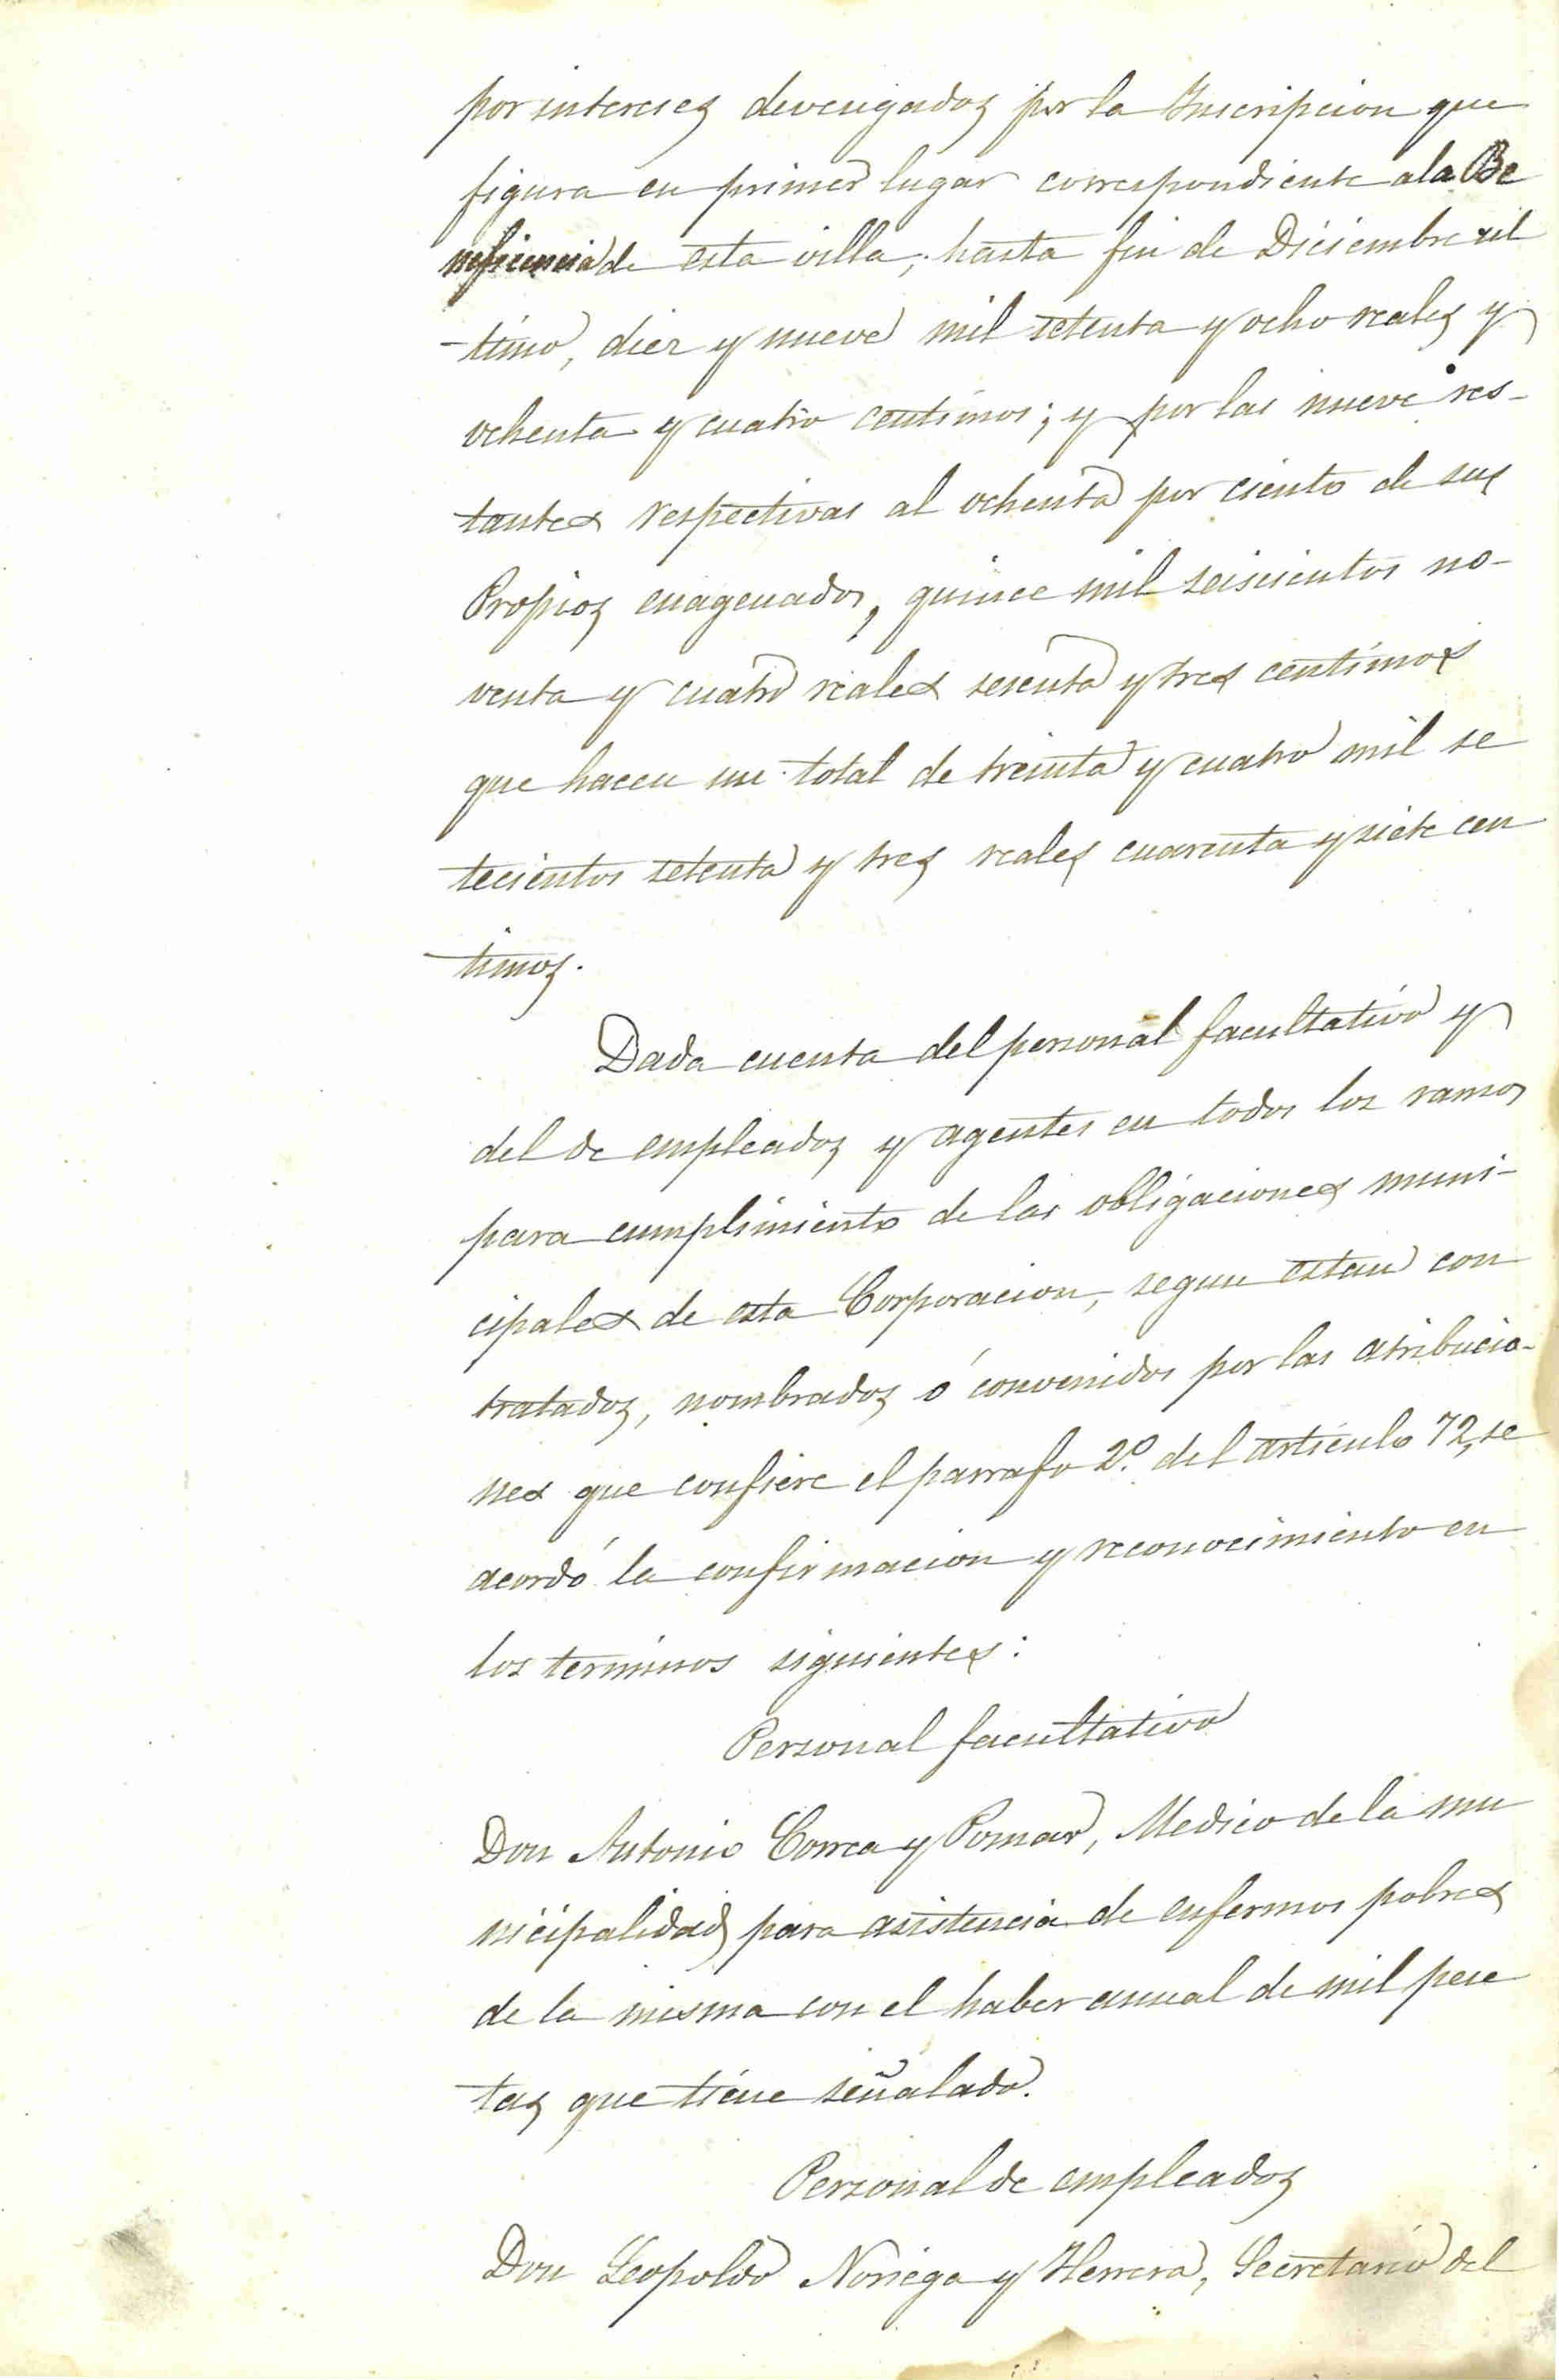 por intereses devengados por la Inscripcion que
figura en primer lugar correspondiente a la Be
neficencia de esta villa, hasta fin de Diciembre ul
-timo, diez y nueve mil setenta y ocho reales y
ochenta y cuatro centimos; y por las nueve res-
tantes respectivas al ochenta por ciento de sus
Propios enagenados, quince mil seiscientos no-
venta y cuatro reales sesenta y tres centimos
que hacen un total de treinta y cuatro mil se
tecientos setenta y tres reales cuarenta y siete cen
timos.
Dada cuenta del personal facultativo y
del de empleados y agentes en todos los ramos
para cumplimiento de las obligaciones muni-
cipales de esta Corporacion, segun estan con
tratados, nombrados ó convenidos por las atribucio-
nes que confiere el parrafo 2º. del articulo 72, se
acordó la confirmacion y reconocimiento en
los terminos siguientes:
Personal facultativo
Don Antonio Correa y Pomar, Medico de la mu
nicipalidad para asistencia de enfermos pobres
de la misma con el haber anual de mil pese
tas que tiene señalado.
Personal de empleados
Don Leopoldo Noriega y Herrera, Secretario del